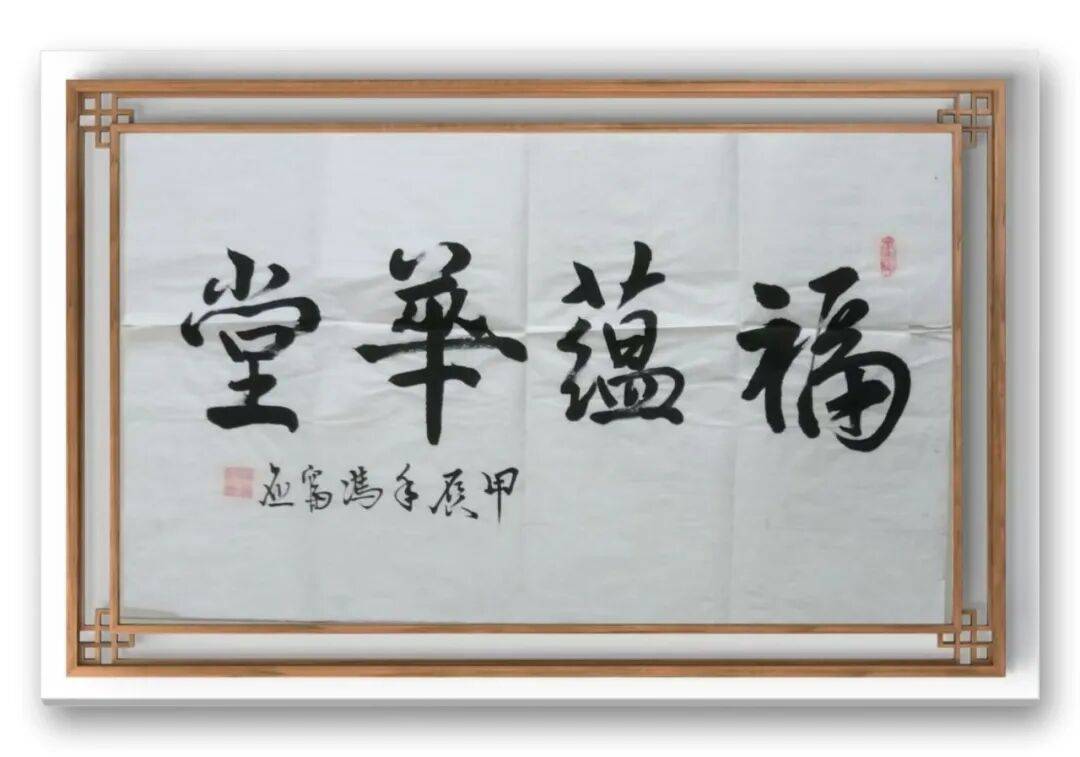 福蕴華堂
甲辰年馮富